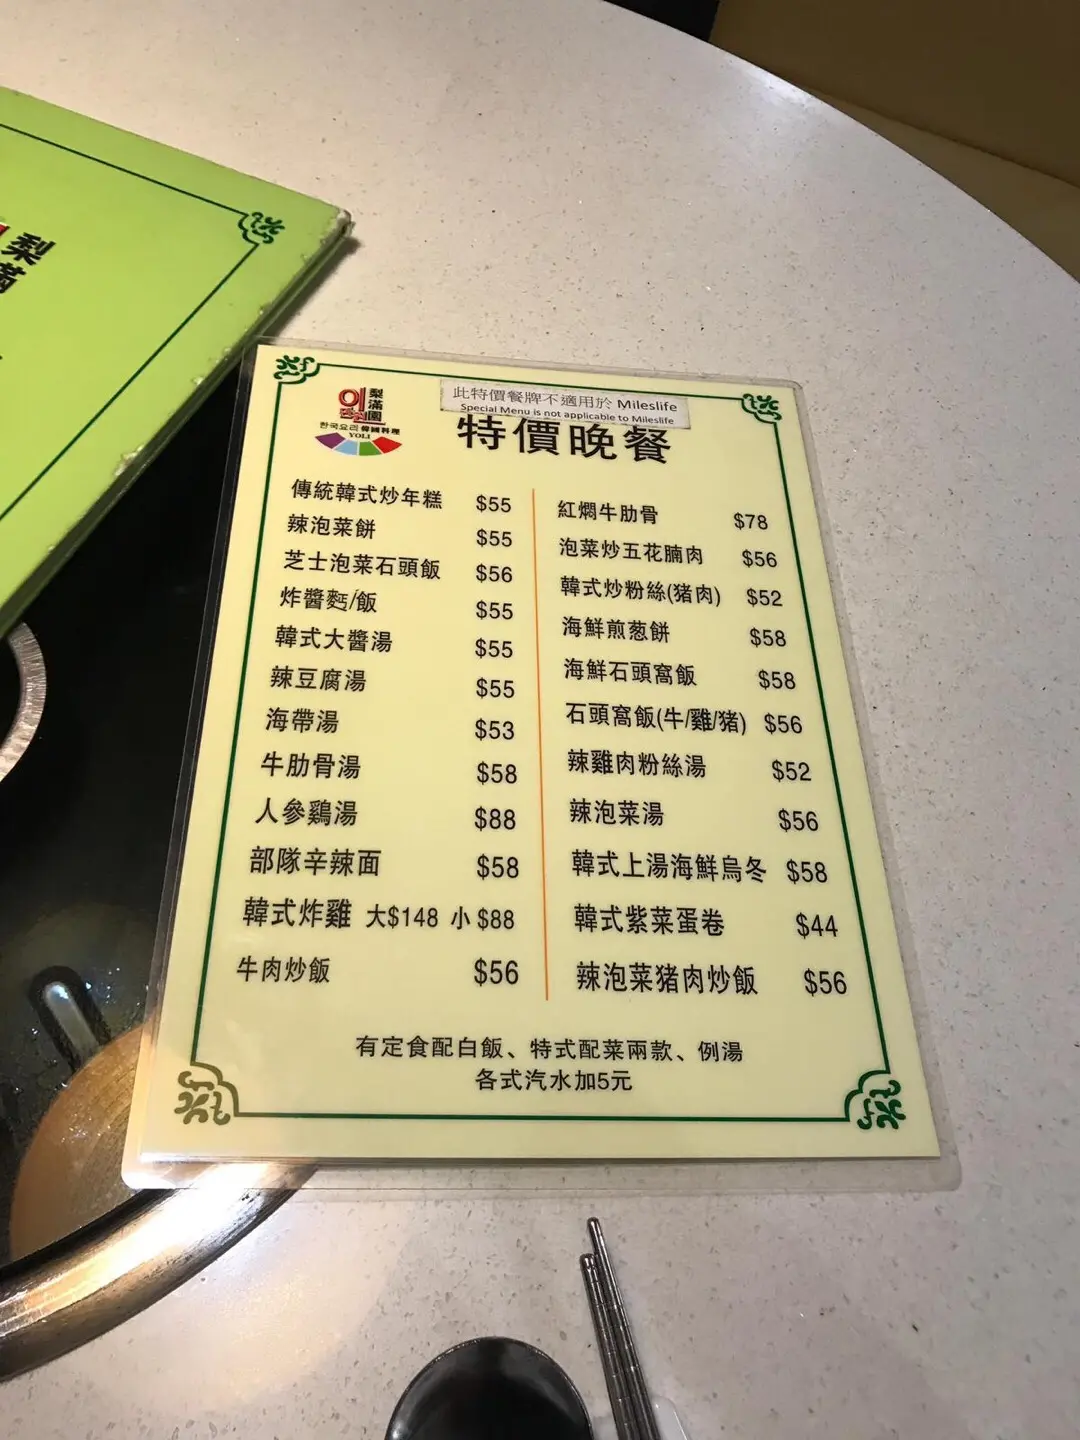 梨
滿
이
梨滿園
한국요리 韓國料理
YOLI
此特價餐牌不適用於 Mileslife
Special Menu is not applicable to Mileslife
特價晚餐
傳統韓式炒年糕 $55
辣泡菜餅 $55
芝士泡菜石頭飯 $56
炸醬麪/飯 $55
韓式大醬湯 $55
辣豆腐湯 $55
海帶湯 $53
牛肋骨湯 $58
人參鷄湯 $88
部隊辛辣面 $58
韓式炸雞 大$148 小$88
牛肉炒飯 $56
紅燜牛肋骨 $78
泡菜炒五花腩肉 $56
韓式炒粉絲(猪肉) $52
海鮮煎葱餅 $58
海鮮石頭窩飯 $58
石頭窩飯(牛/雞/猪) $56
辣雞肉粉絲湯 $52
辣泡菜湯 $56
韓式上湯海鮮烏冬 $58
韓式紫菜蛋卷 $44
辣泡菜猪肉炒飯 $56
有定食配白飯、特式配菜兩款、例湯
各式汽水加5元